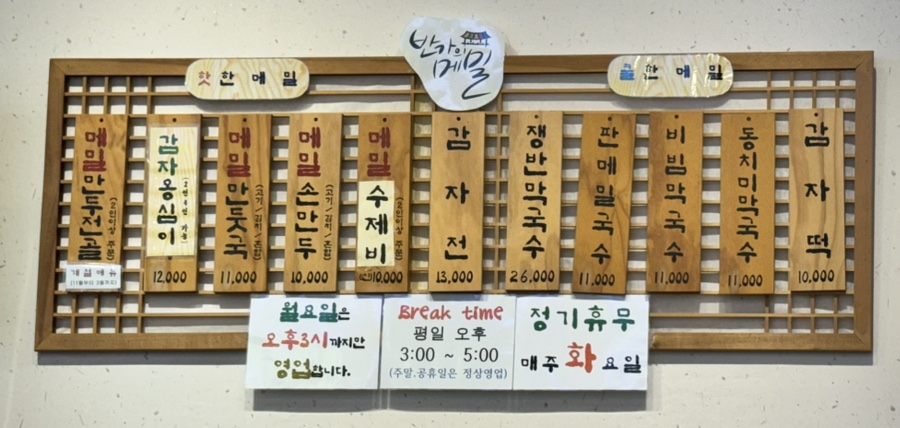 반가의
메밀
핫한 메밀
쿨한 메밀
메밀만두전골
(2인이상 주문)
계절메뉴
감자옹심이
12,000
메밀만둣국
(고기/김치/혼합)
11,000
메밀손만두
(고기/김치/혼합)
10,000
메밀수제비
(2인이상 주문)
10,000
감자전
13,000
쟁반막국수
26,000
판메밀국수
11,000
비빔막국수
11,000
동치미막국수
11,000
감자떡
10,000
월요일은
오후3시까지만
영업합니다.
Break time
평일 오후
3:00 ~ 5:00
(주말.공휴일은 정상영업)
정기휴무
매주 화요일